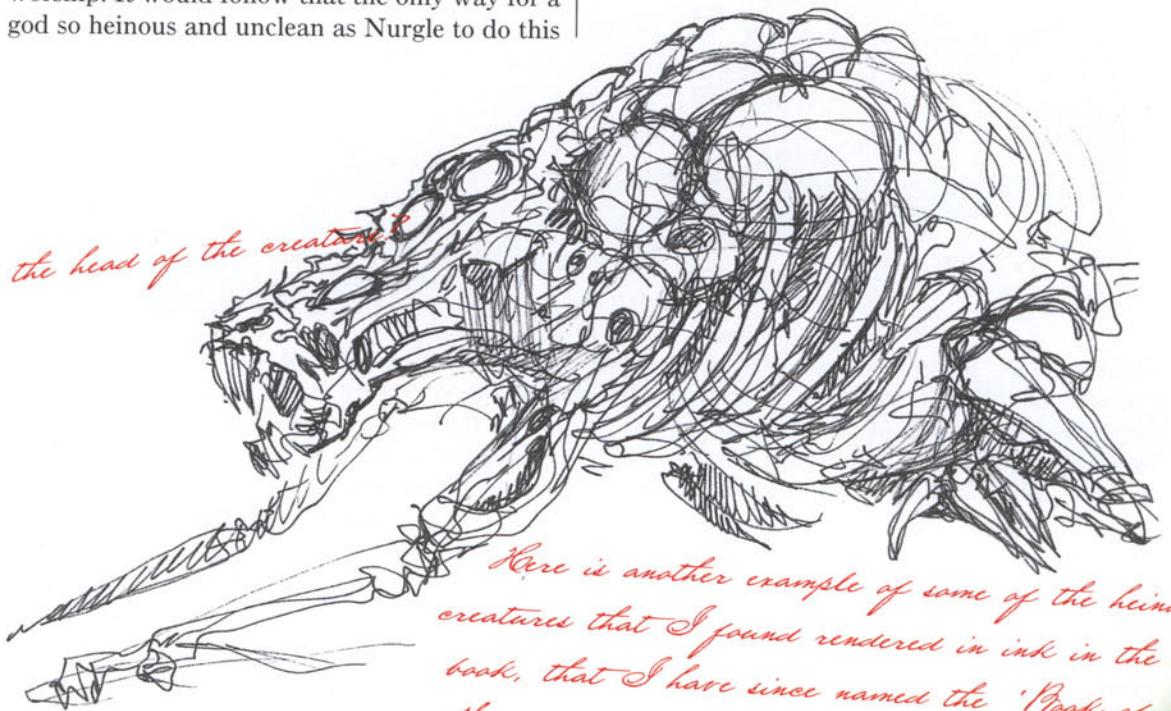 god so heinous and unclean as Nurgle to do this
the head of the creature?
Here is another example of some of the
creatures that I found rendered in ink in the
book, that I have since named the